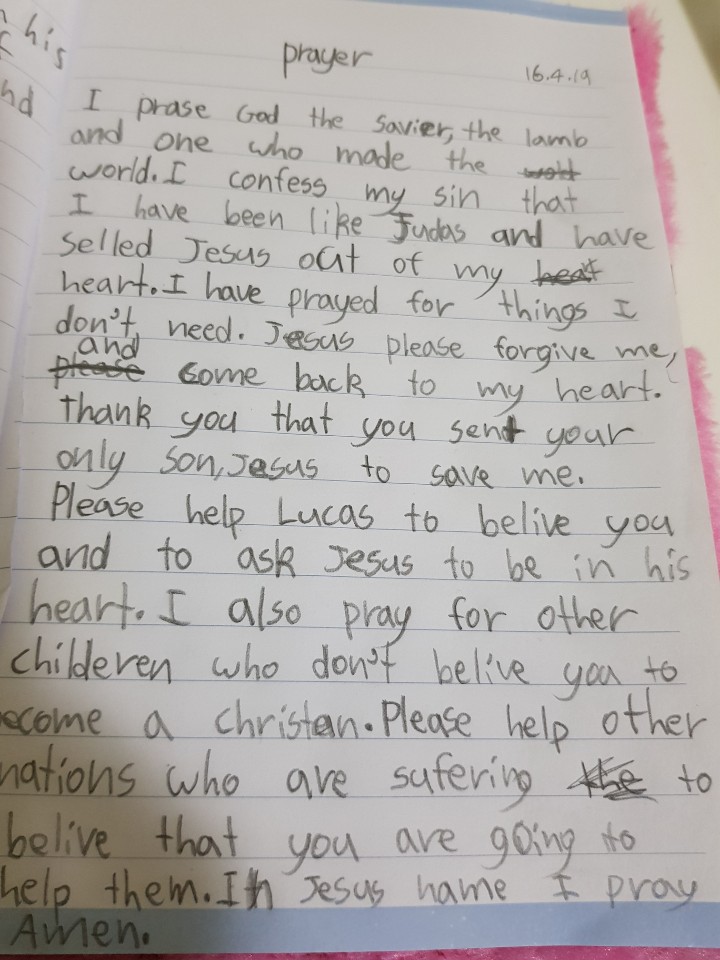 his
nd
prayer
16.4.19
I prase God the Savier, the lamb
and one who made the
world. I confess my sin that
I have been like Judas and have
selled Jesus out of my
heart. I have prayed for things I
don't need. Jesus please forgive me,
and
please come back to my heart.
Thank you that you sent your
only son, Jesus to save me.
Please help Lucas to belive you
and to ask Jesus to be in his
heart. I also pray for other
childeren who don't belive you to
ecome a christen. Please help other
nations who are sufering the to
belive that you are going to
help them. In Jesus name I pray
Amen.